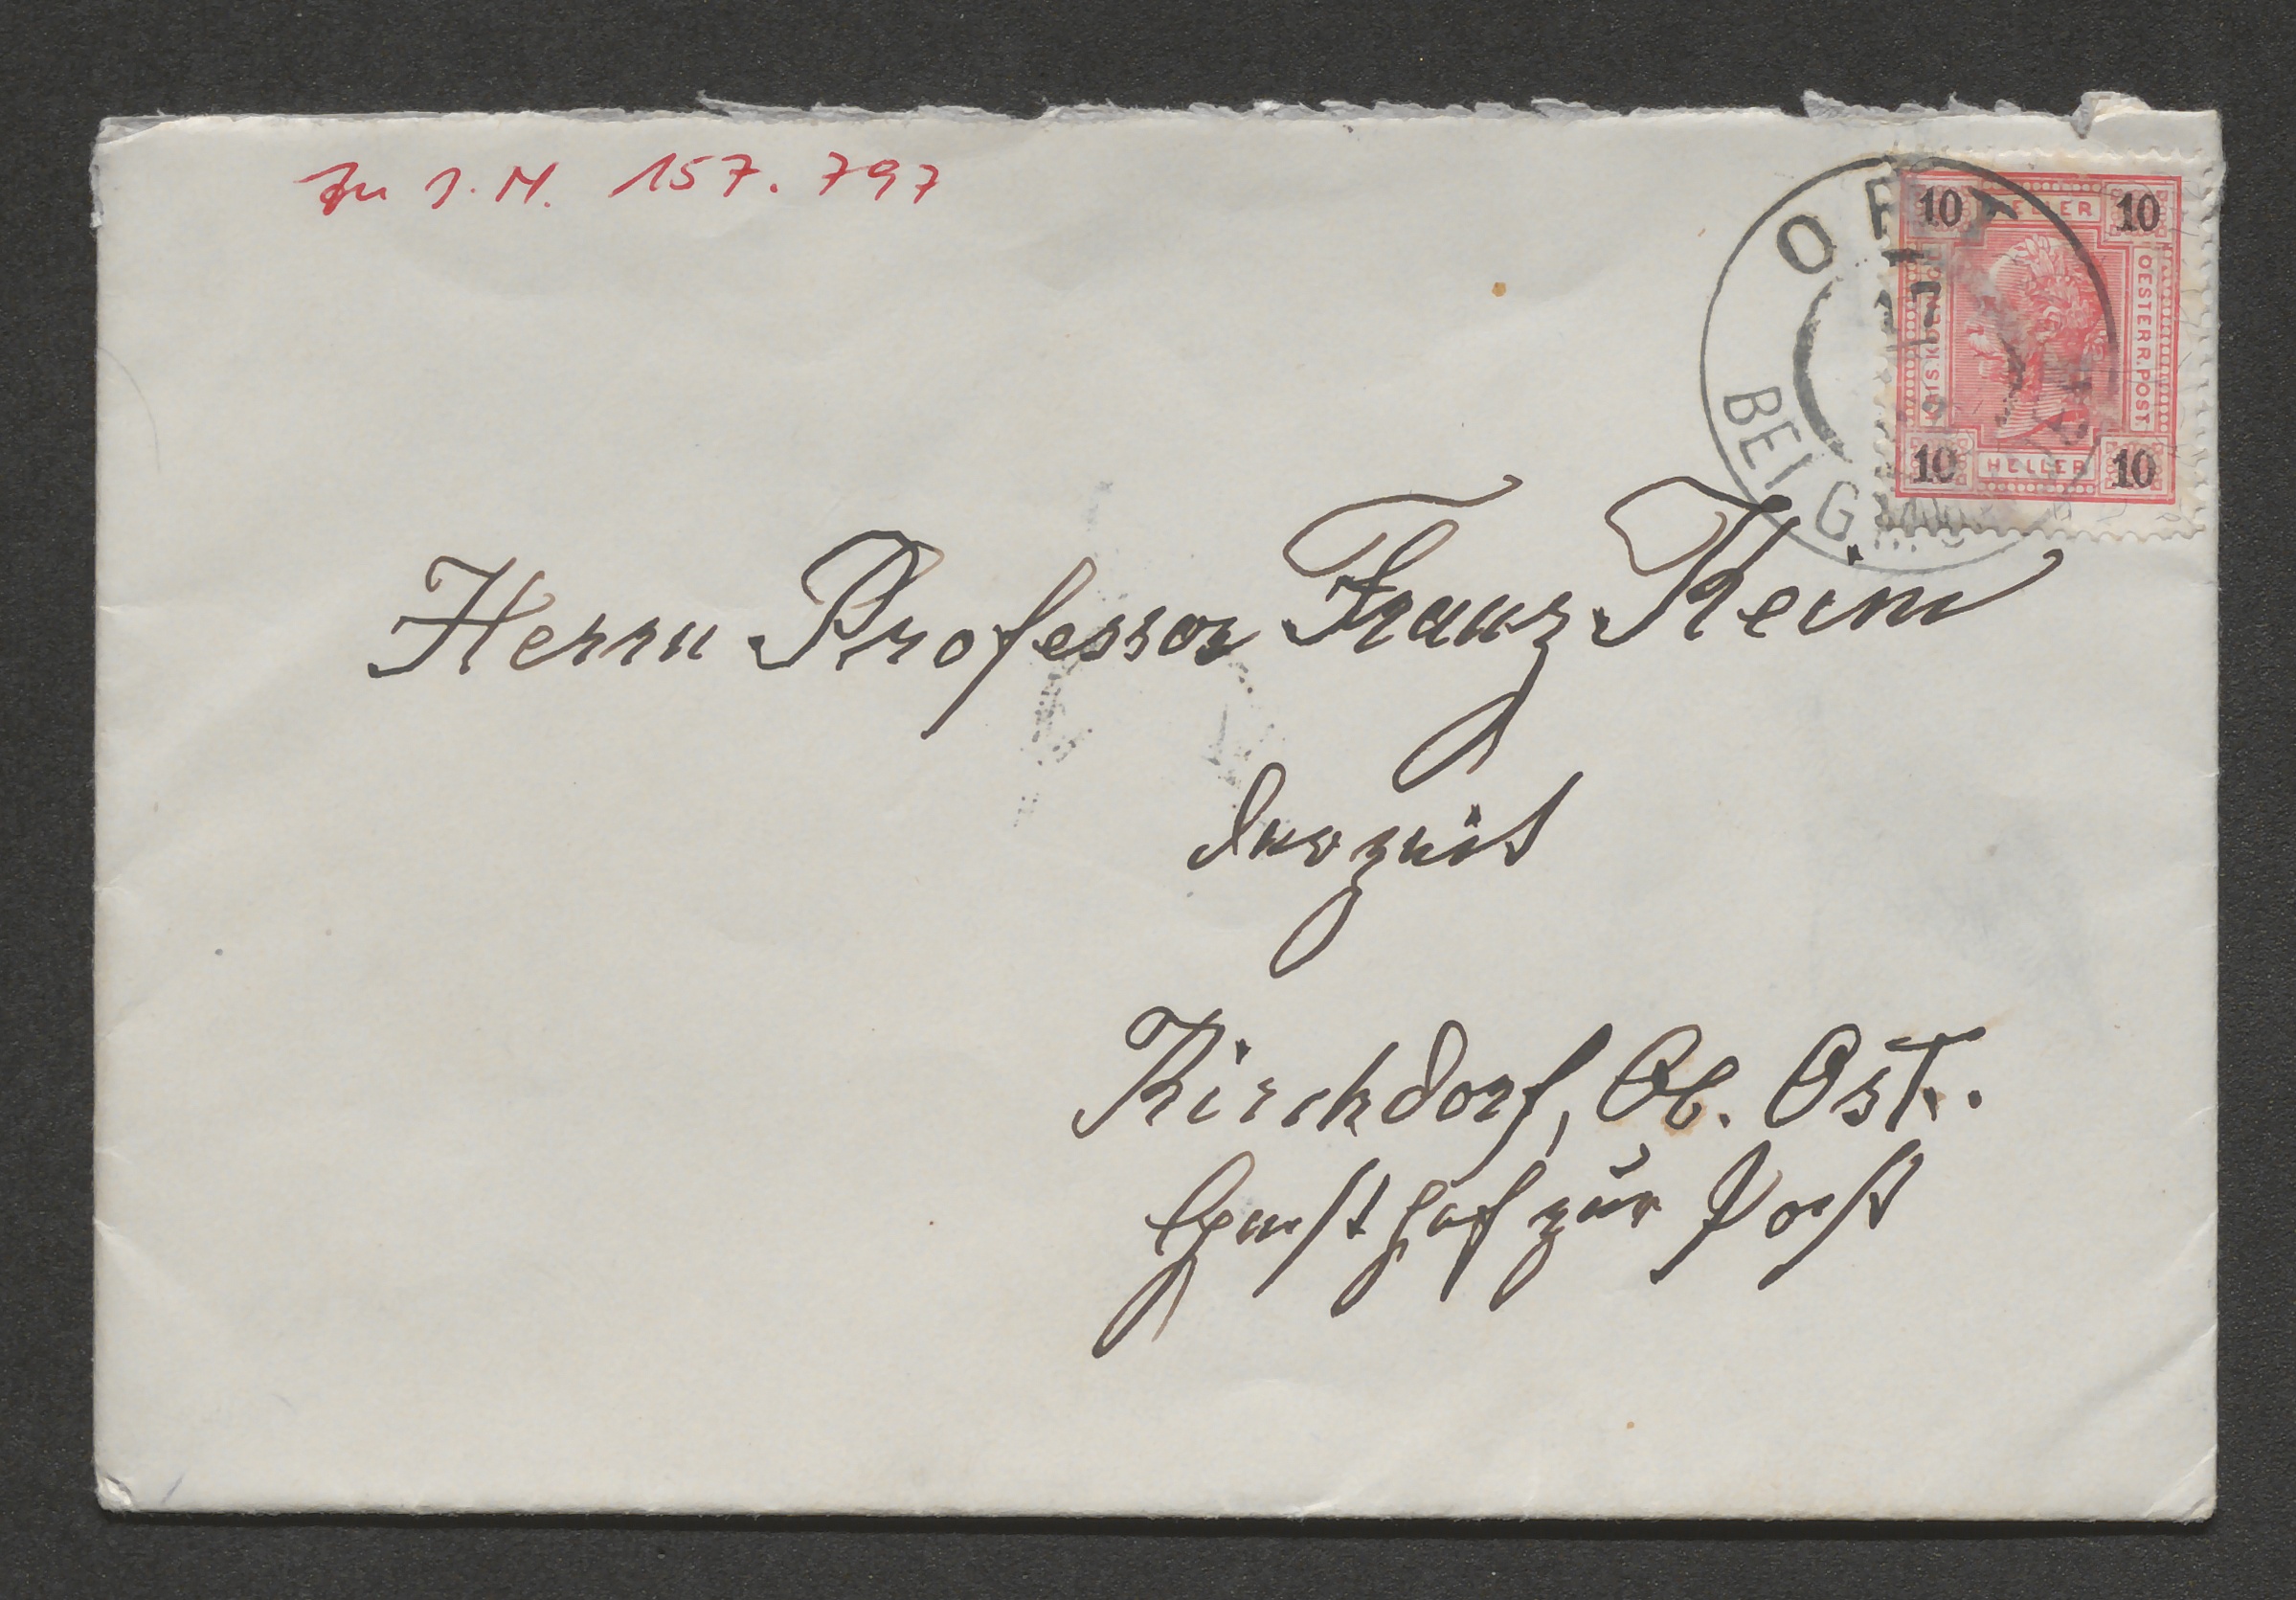 Zu I.N. 157.797
ORT
BEI G
17
10 HELLER 10
OESTERR.POST
10 HELLER 10
Herrn Professor Franz Keim
derzeit
Kirchdorf, Ob. Öst.
Gasthof zur Post